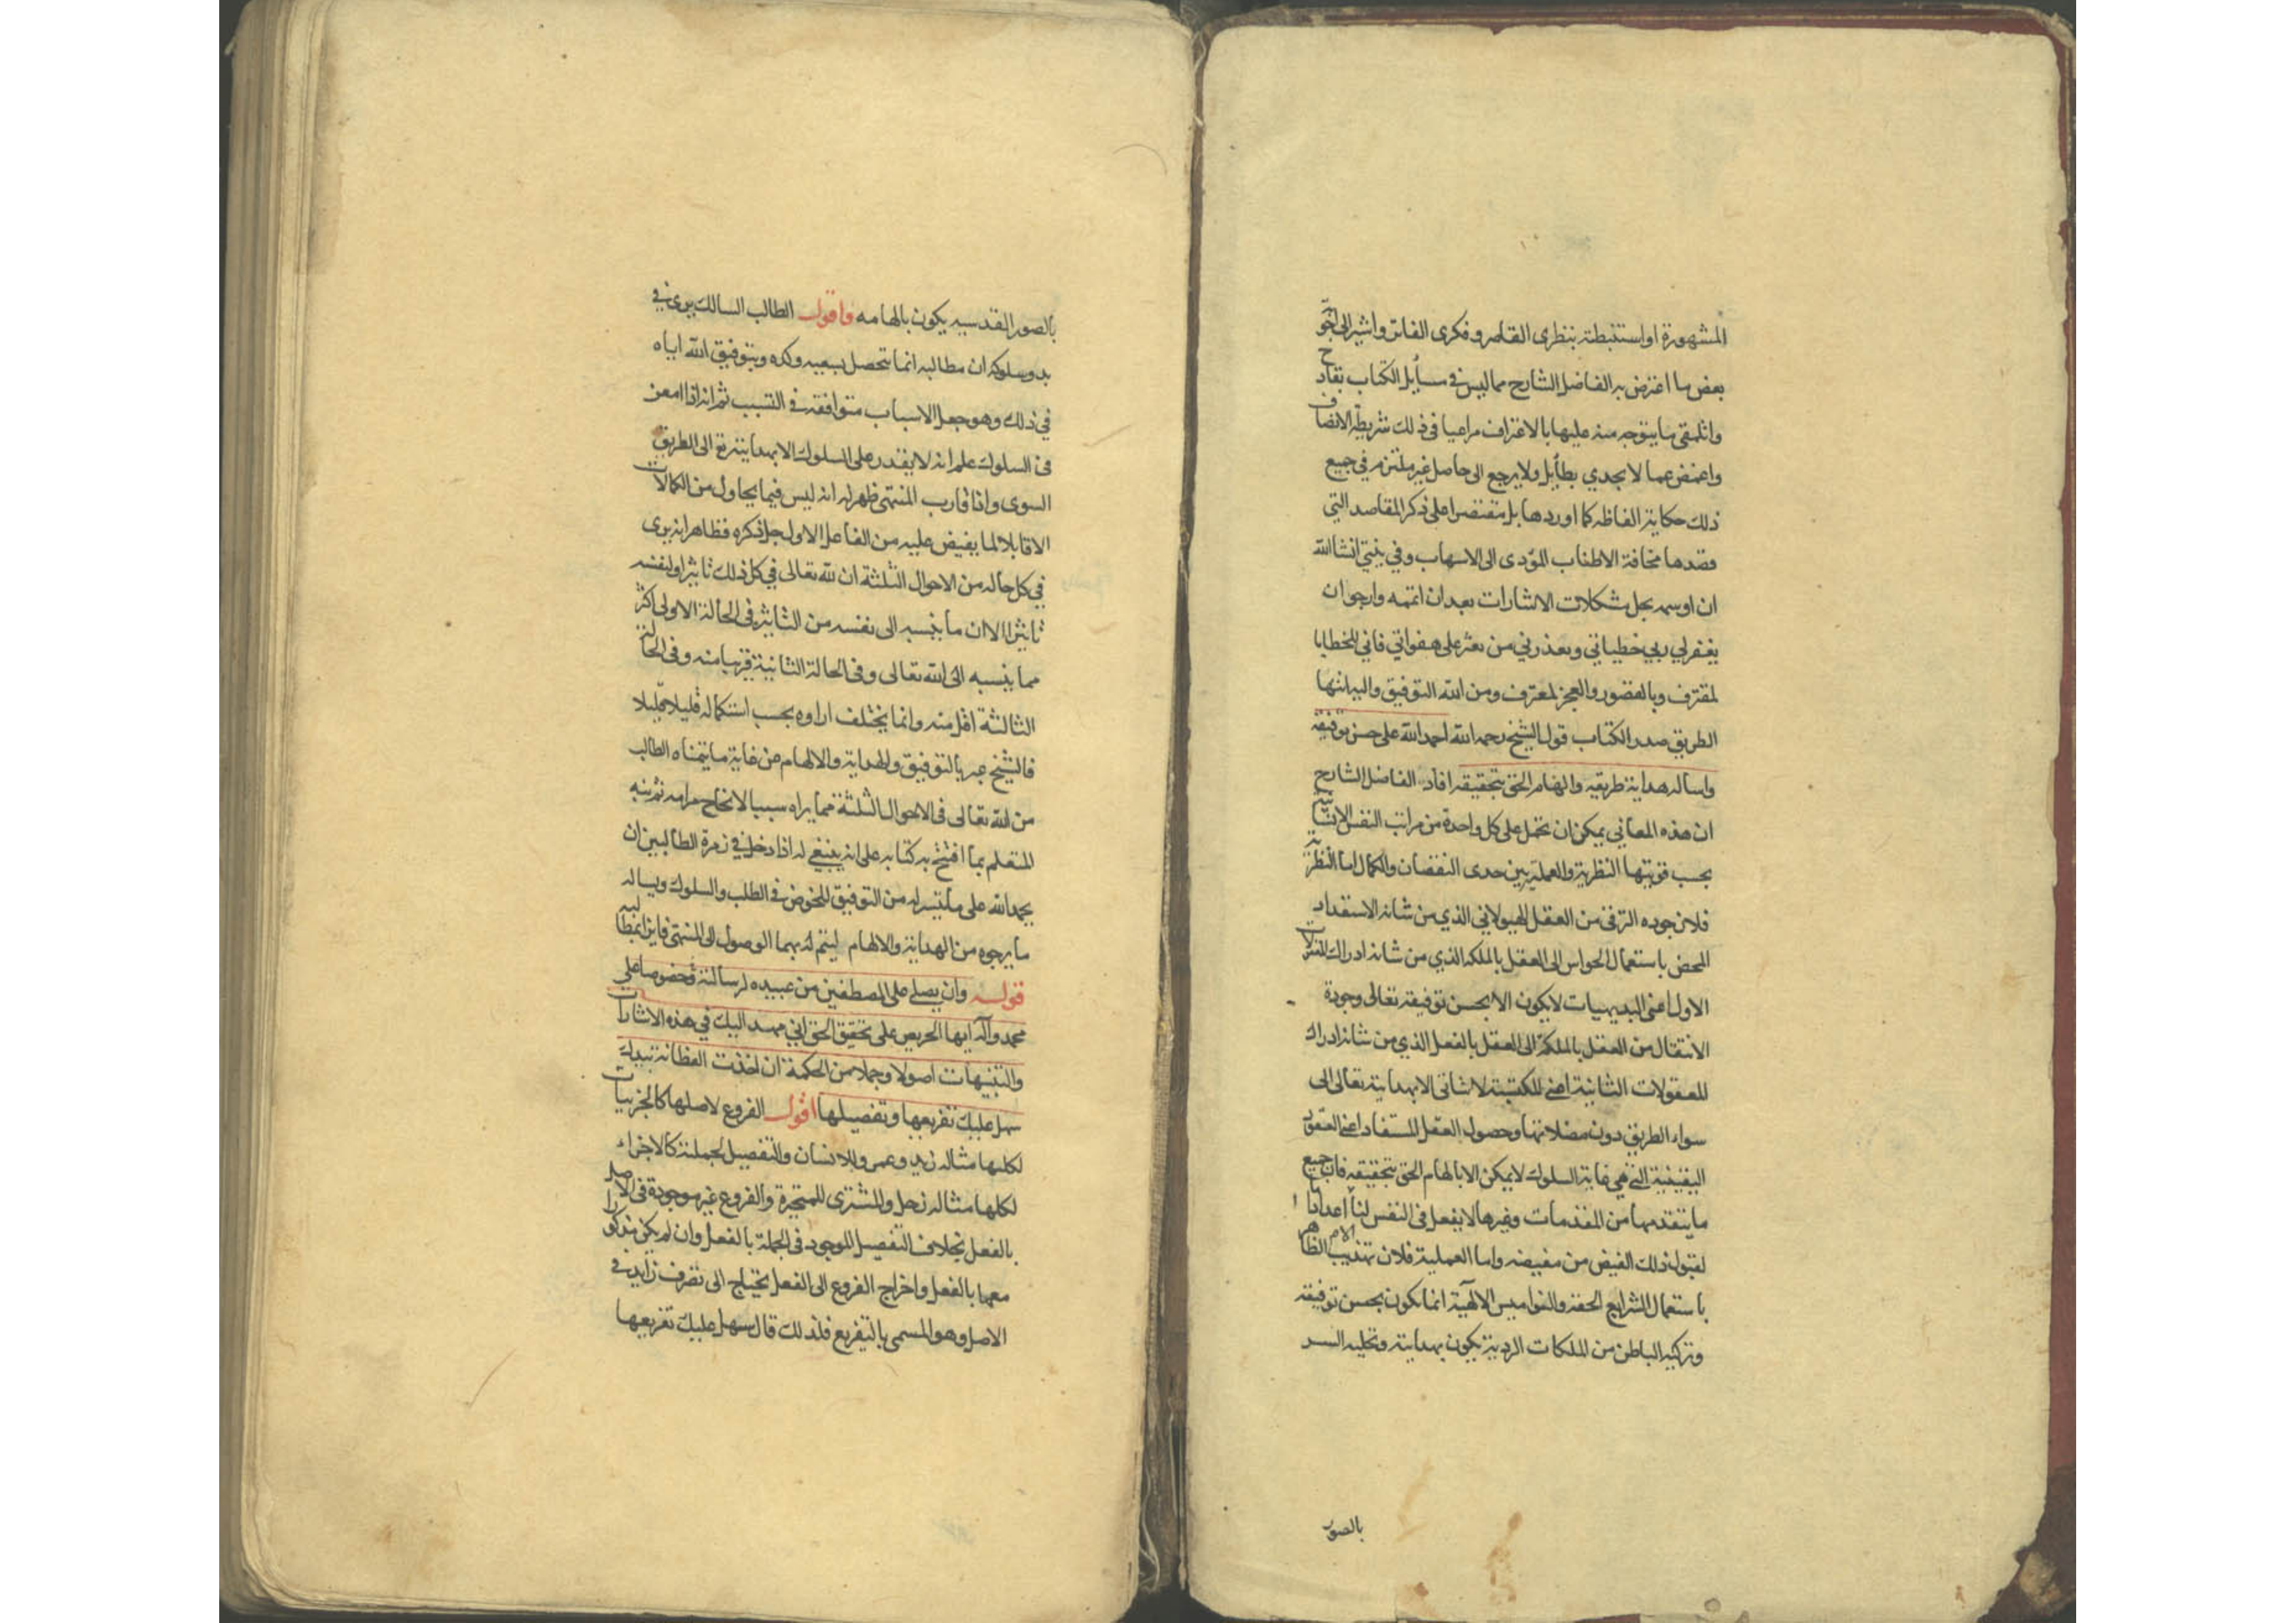 المشهورة او استنبطته بنظرى القاصر وفكرى الفاتر واشير الى اجو
بعض ما اعترض به الفاضل الشارح مما ليس فى مسايل الكتاب بقادح
واتلقى ما يتوجه منه عليها بالاعتراف مراعيا فى ذلك شريطة الانصاف
واغمض عما لا يجدي بطايل ولا يرجع الى حاصل غير ملتزم في جميع
ذلك حكاية الفاظه كما اوردها بل مقتصرا على ذكر المقاصد التي
قصدها مخافة الاطناب المؤدى الى الاسهاب وفي نيتي انشاالله
ان اوسمه بحل مشكلات الاشارات بعد ان اتممه وارجو ان
يغفر لي ربي خطيئاتي ويعذرني من يعثر على هفواتي فاني للخطايا
لمقترف وبالقصور والعجز لمعترف ومن الله التوفيق واليه انتها
الطريق صدر الكتاب قول الشيخ رحمه الله احمد الله على حسن توفيقه
واساله هداية طريقه والهام الحق بتحقيقه افاد الفاضل الشارح
ان هذه المعاني يمكن ان تحمل على كل واحدة من مراتب النفس الانسانية
بحسب قوتيها النظرية والعملية بين حدى النقصان والكمال اما النظرية
فلان جوده الترقى من العقل الهيولاني الذي من شانه الاستعداد
المحض باستعمال الحواس الى العقل بالملكه الذي من شانه ادراك المعقولات
الاول اعنى البديهيات لا يكون الا بحسن توفيقه تعالى وجودة
الانتقال من العقل بالملكة الى العقل بالفعل الذي من شانه ادراك
المعقولات الثانية اعنى المكتسبة لا يتاتى الا بهدايته تعالى الى
سواء الطريق دون مضلاتها وحصول العقل المستفاد اعنى العقود
اليقينية التي هي غاية السلوك لا يمكن الا بالهام الحق بتحقيقه فان جميع
ما يتقدمها من المقدمات وغيرها لا يفعل فى النفس الا اعدادا ما
لقبول ذلك الفيض من مفيضه واما العملية فلان تهذيب الظاهر
باستعمال الشرايع الحقه والنواميس الالهية انما يكون بحسن توفيقه
وتزكيه الباطن من الملكات الردية يكون بهدايته وتحليه السر
بالصور
بالصور القدسيه يكون بالهامه واقول الطالب السالك يرى فى
بدو سلوكه ان مطالبه انما تحصل بسعيه وكده وبتوفيق الله اياه
في ذلك وهو جعل الاسباب متوافقه فى التسبب ثم انه اذا امعن
فى السلوك علم انه لا يقدر على السلوك الا بهدايته تع الى الطريق
السوى واذا قارب المنتهى ظهر له انه ليس فيما يحاول من الكمالات
الا قابلا لما يفيض عليه من الفاعل الاول جل ذكره فظاهر انه يرى
في كل حاله من الاحوال الثلثة ان لله تعالى في كل ذلك تاثيرا ولنفسه
تاثيرا الا ان ما ينسبه الى نفسه من التاثير فى الحالة الاولى اكثر
مما ينسبه الى الله تعالى وفى الحالة الثانية قريبا منه وفى الحالة
الثالثة اقل منه وانما يختلف اراوه بحسب استكماله قليلا قليلا
فالشيخ عبر بالتوفيق والهداية والالهام عن غاية ما يتمناه الطالب
من الله تعالى فى الاحوال الثلثة مما يراه سببا لانجاح مرامه ثم نبه
المتعلم بما افتتح به كتابه على انه ينبغي له اذا دخل في زمرة الطالبين ان
يحمد الله على ما تيسر له من التوفيق للخوض فى الطلب والسلوك ويساله
ما يرجوه من الهداية والالهام ليتم له بهما الوصول الى المنتهى فايزا بمطالبه
قوله وان يصلي على المصطفين من عبيده لرسالته وخصوصا على
محمد وآله ايها الحريص على تحقيق الحق اني مهد اليك في هذه الاشارات
والتنبيهات اصولا وجملا من الحكمة ان اخذت الفطانة بيدك
سهل عليك تفريعها وتفصيلها اقول الفروع لاصلها كالجزئيات
لكليها مثاله زيد وعمرو للانسان والتفصيل لجملته كالاجزاء
لكلها مثاله زحل والمشترى للمتحيرة والفروع غير موجودة فى الاصل
بالفعل بخلاف التفصيل الموجود فى الجملة بالفعل وان لم يكن مذكورا
معها بالفعل واخراج الفروع الى الفعل يحتاج الى تصرف زايد فى
الاصل وهو المسمى بالتفريع فلذلك قال سهل عليك تفريعها